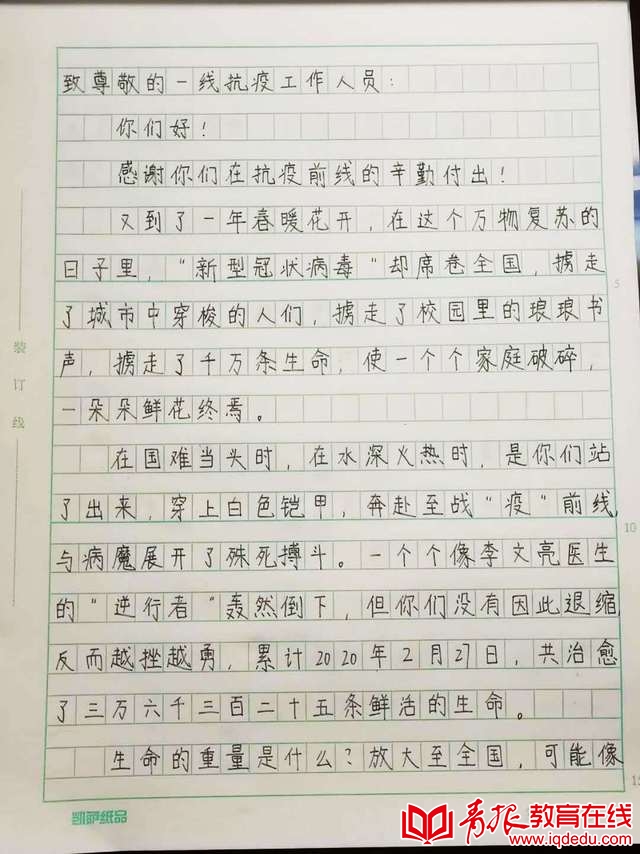 致尊敬的一线抗疫工作人员：
你们好！
感谢你们在抗疫前线的辛勤付出！
又到了一年春暖花开，在这个万物复苏的
日子里，“新型冠状病毒”却席卷全国，掳走
了城市中穿梭的人们，掳走了校园里的琅琅书
声，掳走了千万条生命，使一个个家庭破碎，
一朵朵鲜花终焉。
在国难当头时，在水深火热时，是你们站
了出来，穿上白色铠甲，奔赴至战“疫”前线，
与病魔展开了殊死搏斗。一个个像李文亮医生
的“逆行者”轰然倒下，但你们没有因此退缩，
反而越挫越勇，累计2020年2月27日，共治愈
了三万六千三百二十五条鲜活的生命。
生命的重量是什么？放大至全国，可能像
装订线
5
10
15
凯萨纸品
青报教育在线
www.iqdedu.com